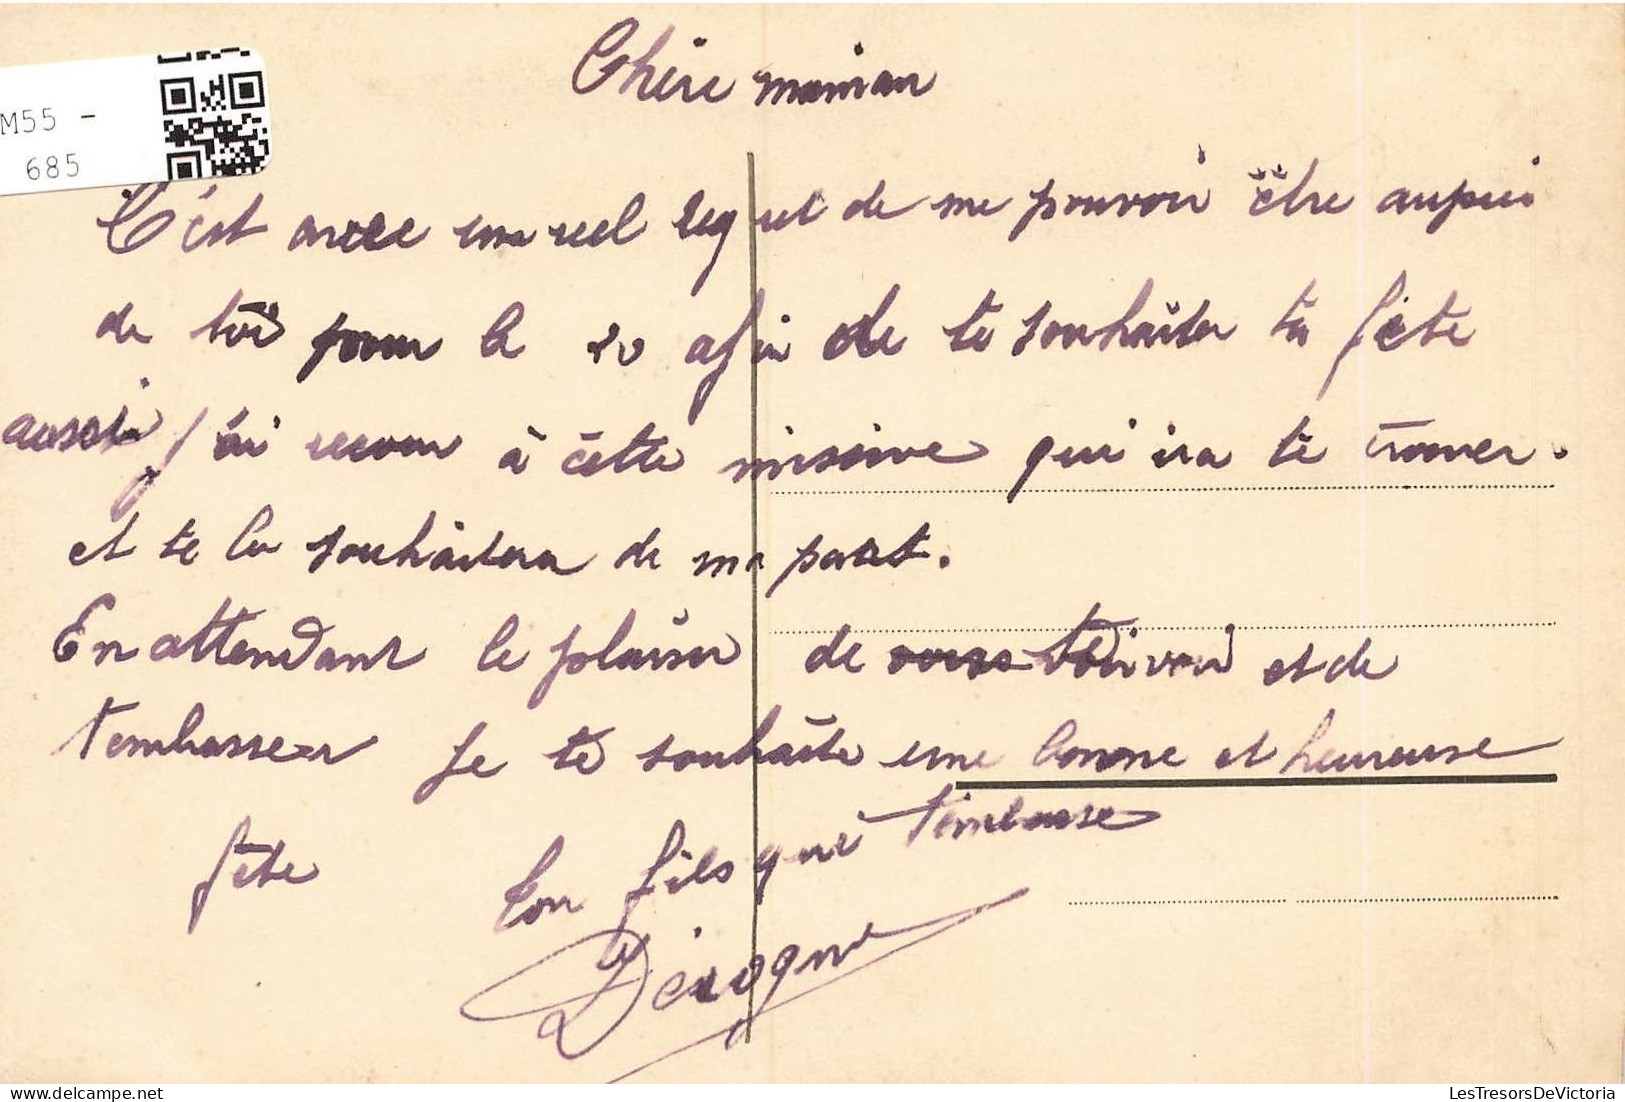 Chère maman
M55 -
685
C'est avec un reel regret de me pouvoir être auprès
de toi pour le 20 afin de te souhaiter ta fête
aussi j'ai recour à cette missive qui ira te trouver.
et te la souhaitera de ma part.
En attendant le plaisir de voir et de
t'embrasser je te souhaite une bonne et heureuse
fête Ton fils qui t'embrasse
LesTresorsDeVictoria